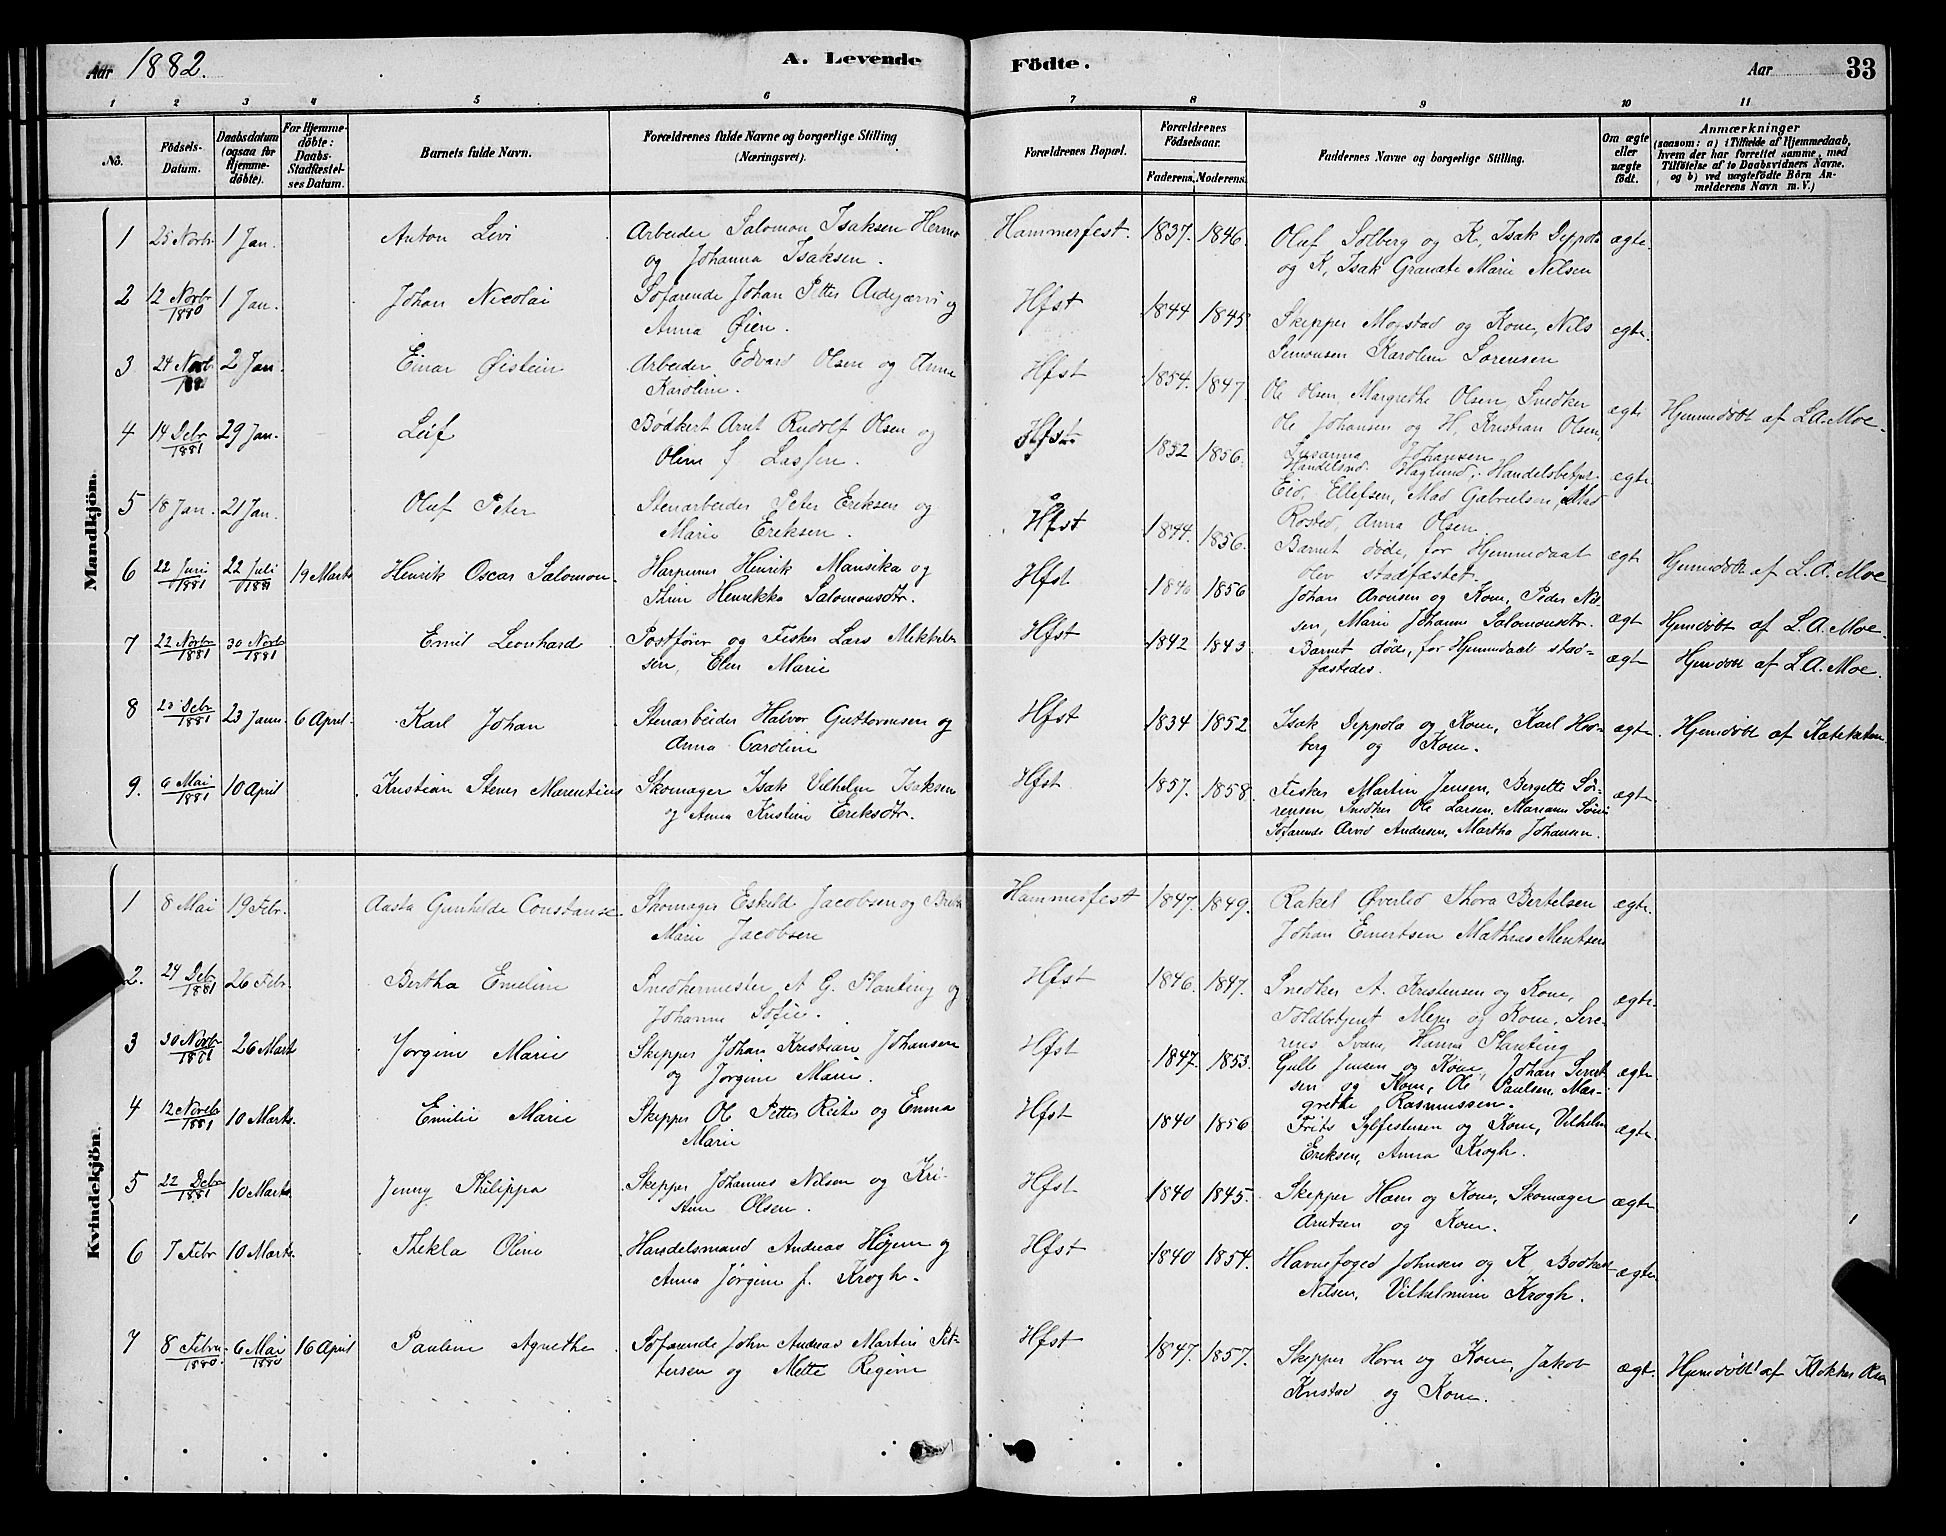 Aar 1882.
A. Levende Födte.
Aar 33
1 2 3 4 5 6 7 8 9 10 11
No.
Födsels-Datum.
Daabsdatum (ogsaa for Hjemme-döbte).
For Hjemme-döbte: Daabs-Stadfæstel-ses Datum.
Barnets fulde Navn.
Forældrenes fulde Navne og borgerlige Stilling (Næringsvei).
Forældrenes Bopæl.
Forældrenes Födselsaar.
Faderens. Moderens.
Faddernes Navne og borgerlige Stilling.
Om ægte eller uægte födt.
Anmærkninger
(saasom: a) i Tilfælde af Hjemmedaab, hvem der har forrettet samme, med Tilföielse af to Daabsvidners Navne, og b) ved uægtefödte Börn An-melderens Navn m. V.)
Mandkjön.
1 25 Novbr 1 Jan. Anton Levi Arbeider Salomon Isaksen
og Johanna Isaksen. Hammerfest. 1837. 1846. Oluf Solberg og K, Isak Deppola
og K, Isak Granate Marie Nilsen ægte.
2 12 Novbr 1880 1 Jan. Johan Nicolai Söfarende Johan Petter og
Anna Øien. Hfst 1844 1845 Skipper Mogstad og Kone, Nils
Simonsen Karoline Sorensen egte.
3 24 Novb 2 Jan. Einar Øistein Arbeider Edvard Olsen og Anne
Karoline. Hfst 1854. 1847 Ole Olsen, Margrethe Olsen Snedker
Ole Johansen og H, Kristian Olsen,
Susanna Johansen ægte Hjemmedöbt af L.A. Moe.
4 14 Debr 1881 29 Jan. Leif Bödkert Arnt Rudolf Olsen og
Oline f Lassen. Hfst 1852 1856. Handelsmd. Haglund, Handelsbetjer
Eid, Ellefsen, Mad Gabrielsen, Mad
Rosted, Anna Olsen ægte.
5 18 Jan. 21 Jan. Oluf Peter Stenarbeider Peter Eriksen og
Marie Eriksen. Hfst 1844. 1856. Barnet döde, for Hjemmedaab
blev stadfæstet. ægt Hjemmedöbt af L.A. Moe
6 22 Juni 1881 22 Juli 1881 19 Marts Henrik Oscar Salomon. Henrik Mansika og
Henrikka Salomonsdtr. Hfst 1846 1856 Johan Aronsen og Kone, Peder Nil-
sen, Marie Johanne Salomonsdtr. ægt Hjemdöbt af L.A. Moe.
7 22 Novbr 1881 30 Novb 1881 Emil Leonhard Postförer og Fisker Lars Mikkel-
sen, Elen Marie Hfst 1842 1843 Barnet döde, for Hjemmedaab stad-
fæstedes. ægt Hjemdöbt af L.A. Moe.
8 Debr 1881 23 Janu. 6 April. Karl Johan Stenarbeider Halvor Guttormsen og
Anna Caroline Hfst 1834 1852 Isak Deppola og Kone, Karl Hov-
berg og Kone. ægte Hjemdöbt af Kateketen
9. 6 Mai 1881 10 April Kristian Stener Marentius Skomager Isak Vilhelm Isaksen
og Anna Kristine Eriksdtr. Hfst 1857. 1858. Fisker Martin Jensen, Bergette Sö-
rensen Snedker Ole Larsen, Marianne
Söfarende Arvid Andersen, Martha Johansen. ægt
Kvindekjön.
1 8 Mai 19 Febr. Aasta Gunhilde Constanse. Skomager Eskild Jacobsen og
Marie Jacobsen Hammerfest 1847. 1849. Rakel Øverlid Thora Bertelsen
Johan Einertsen Mathias Mentsen ægte
2. 24 Deb 1881 26 Febr. Bertha Emeline Snedkermester A G. Planting og
Johanne Sofie. Hfst 1846. 1847. Snedker A. Kristensen og Kone,
Toldbetjent Mejer og Kone, Sere-
nus Svan, Hanna Planting ægte.
3 30 Novbr 26 Mart Jorgine Marie Skipper Johan Kristian Johansen
og Jorgine Marie. Hfst 1847. 1853. Gulle Jensen og Kone, Johan Sivert
sen og Kone, Ole Paulsen, Mar-
grethe Rasmussen. ægte.
4 12 Novb 1881 10 Marts. Emilie Marie Skipper Ole Petter Reite og Emma
Marie Hfst 1840 1856 Frits Sylfestersen og Kone, Vilhelm
Eriksen, Anna Krogh. ægte.
5 22 Deb 1881 10 Marts. Jenny Philippa Skipper Johannes Nilsen og Kri-
stine Olsen. Hfst 1840 1845. Skipper Horn og Kone, Skomager
Arntsen og Kone. ægte
6 7 Febr 10 Marts. Thekla Oline Handelsmand Andreas Höjem og
Anna Jörgine f. Krogh. Hfst 1840 1854. Havnefoged Johnsen og K, Bödker
Nilsen, Vilhelmine Krogh. ægte
7 8 Febru. 1880 6 Mai 1880 16 April Pauline Agnethe Söfarende John Andreas Martin Pet-
tersen og Mette Regine Hfst 1847. 1857. Skipper Horn og Kone, Jakob
Kristad og Kone. ægt. Hjemdöbt af Klokker